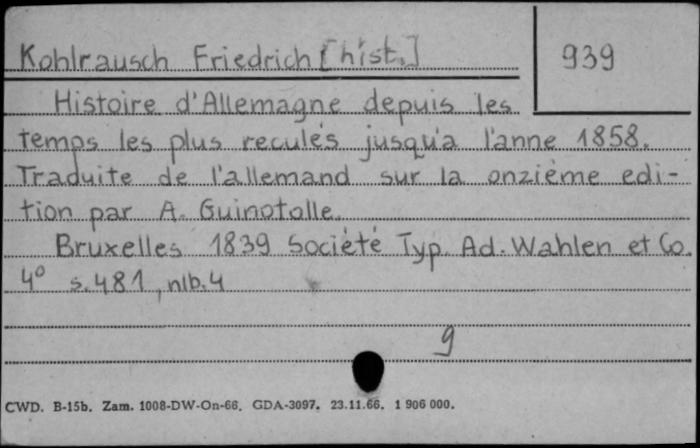 Kohlrausch Friedrich [hist.]
939
Histoire d'Allemagne depuis les
temps les plus reculés jusqu'a l'anne 1858.
Traduite de l'allemand sur la onzième edi-
tion par A. Guinotolle.
Bruxelles 1839 Société Typ. Ad. Wahlen et Co.
4° s. 481, nlb. 4
9
CWD. B-15b. Zam. 1008-DW-On-66. GDA-3097. 23.11.66. 1 906 000.